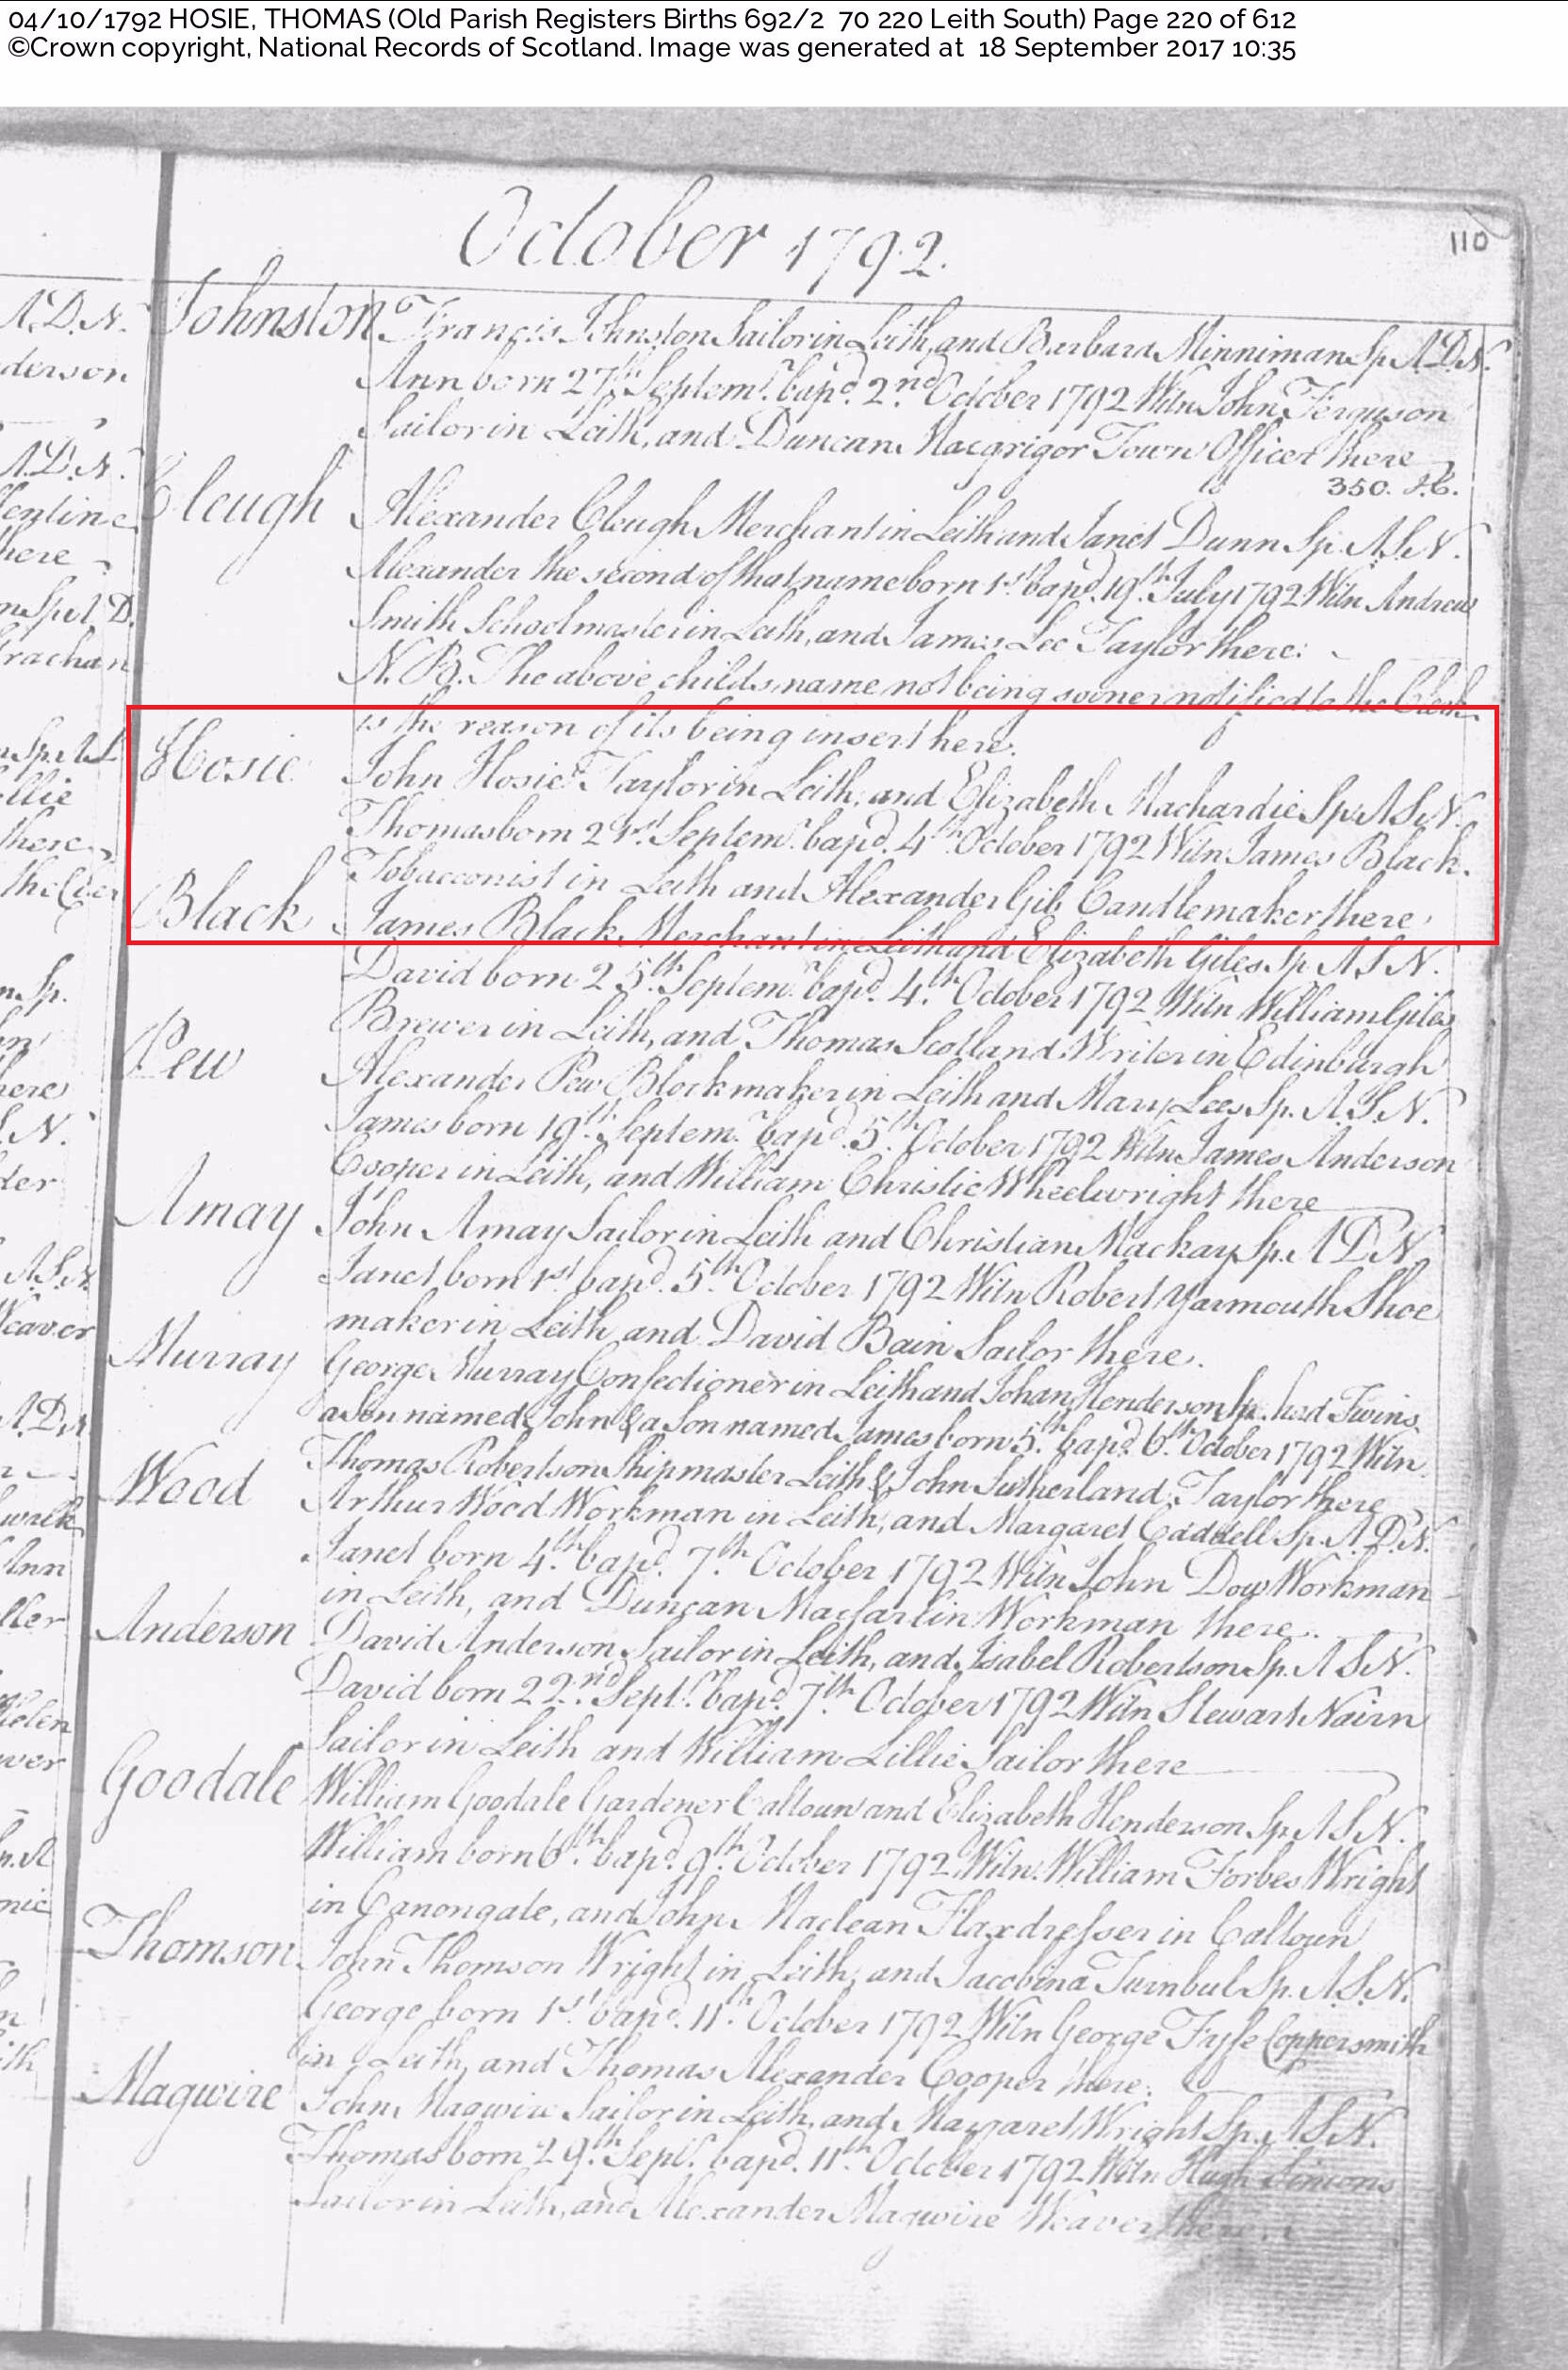 04/10/1792 HOSIE, THOMAS (Old Parish Registers Births 692/2 70 220 Leith South) Page 220 of 612
©Crown copyright, National Records of Scotland. Image was generated at 18 September 2017 10:35
October 1792.
110
A.D.N.
derson
A.D.N.
here
rachan
ellie
there
here
A.S.N.
Weaver
Ann
Helen
Johnston Francis Johnston Sailor in Leith, and Barbara Minniman Sp. A.D.N.
Ann born 27th Septemr. bapd. 2nd October 1792 Witn John Ferguson
Sailor in Leith, and Duncan Macgrigor Town Officer there
350. J.C.
Cleugh Alexander Cleugh Merchant in Leith and Janet Dunn Sp. A.S.N.
Alexander the second of that name born 1st bapd. 19th July 1792 Witn Andrew
Smith Schoolmaster in Leith, and James Lee Taylor there.
N.B. The above childs name not being sooner notified to the Clerk
is the reason of its being insert here.
Hosie John Hosie Taylor in Leith, and Elizabeth Machardie Sp. A.S.N.
Thomas born 21st Septemr. bapd. 4th October 1792 Witn James Black
Tobacconist in Leith and Alexander Gib Candlemaker there
Black James Black Merchant in Leith and Elizabeth Giles Sp A S N.
David born 25th Septemr. bapd. 4th October 1792 Witn William Giles
Brewer in Leith, and Thomas Scotland Writer in Edinburgh
Pew Alexander Pew Blockmaker in Leith and Mary Lees Sp. A.S.N.
James born 19th Septemr. bapd. 5th October 1792 Witn James Anderson
Cooper in Leith, and William Christie Wheelwright there
Amay John Amay Sailor in Leith and Christian Mackay Sp. A D N.
Janet born 1st bapd. 5th October 1792 Witn Robert Yarmouth Shoe
maker in Leith and David Bain Sailor there.
Murray George Murray Confectioner in Leith and Johan Henderson Sp. had Twins
a Son named John & a Son named James born 5th bapd. 6th October 1792 Witn
Thomas Robertson Shipmaster Leith & John Sutherland Taylor there
Wood Arthur Wood Workman in Leith, and Margaret Caddell Sp. A.D.N.
Janet born 4th bapd. 7th October 1792 Witn John Dow Workman
in Leith, and Duncan Macfarlin Workman there.
Anderson David Anderson Sailor in Leith, and Isabel Robertson Sp. A S N.
David born 22nd Septr. bapd. 7th October 1792 Witn Stewart Nairn
Sailor in Leith and William Lillie Sailor there
Goodale William Goodale Gardener Caltoun and Elizabeth Henderson Sp. A S N.
William born 6th bapd. 9th October 1792 Witn. William Forbes Wright
in Canongate, and John Maclean Flaxdresser in Caltoun
Thomson John Thomson Wright in Leith, and Jacobina Turnbul Sp. A.S.N.
George born 1st bapd. 11th October 1792 Witn George Fyfe Coppersmith
in Leith, and Thomas Alexander Cooper there.
Magwire John Magwire Sailor in Leith, and Margaret Wright Sp. A.S.N.
Thomas born 29th Septr. bapd. 11th October 1792 Witn Hugh Simons
Sailor in Leith, and Alexander Magwire Weaver there.